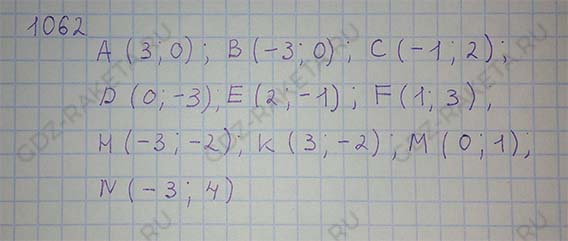 1062
A (3; 0); B (-3; 0); C (-1; 2);
D (0; -3), E (2; -1); F (1; 3),
H (-3; -2); K (3; -2); M (0; 1);
N (-3; 4)
GDZ-RAKETA.RU